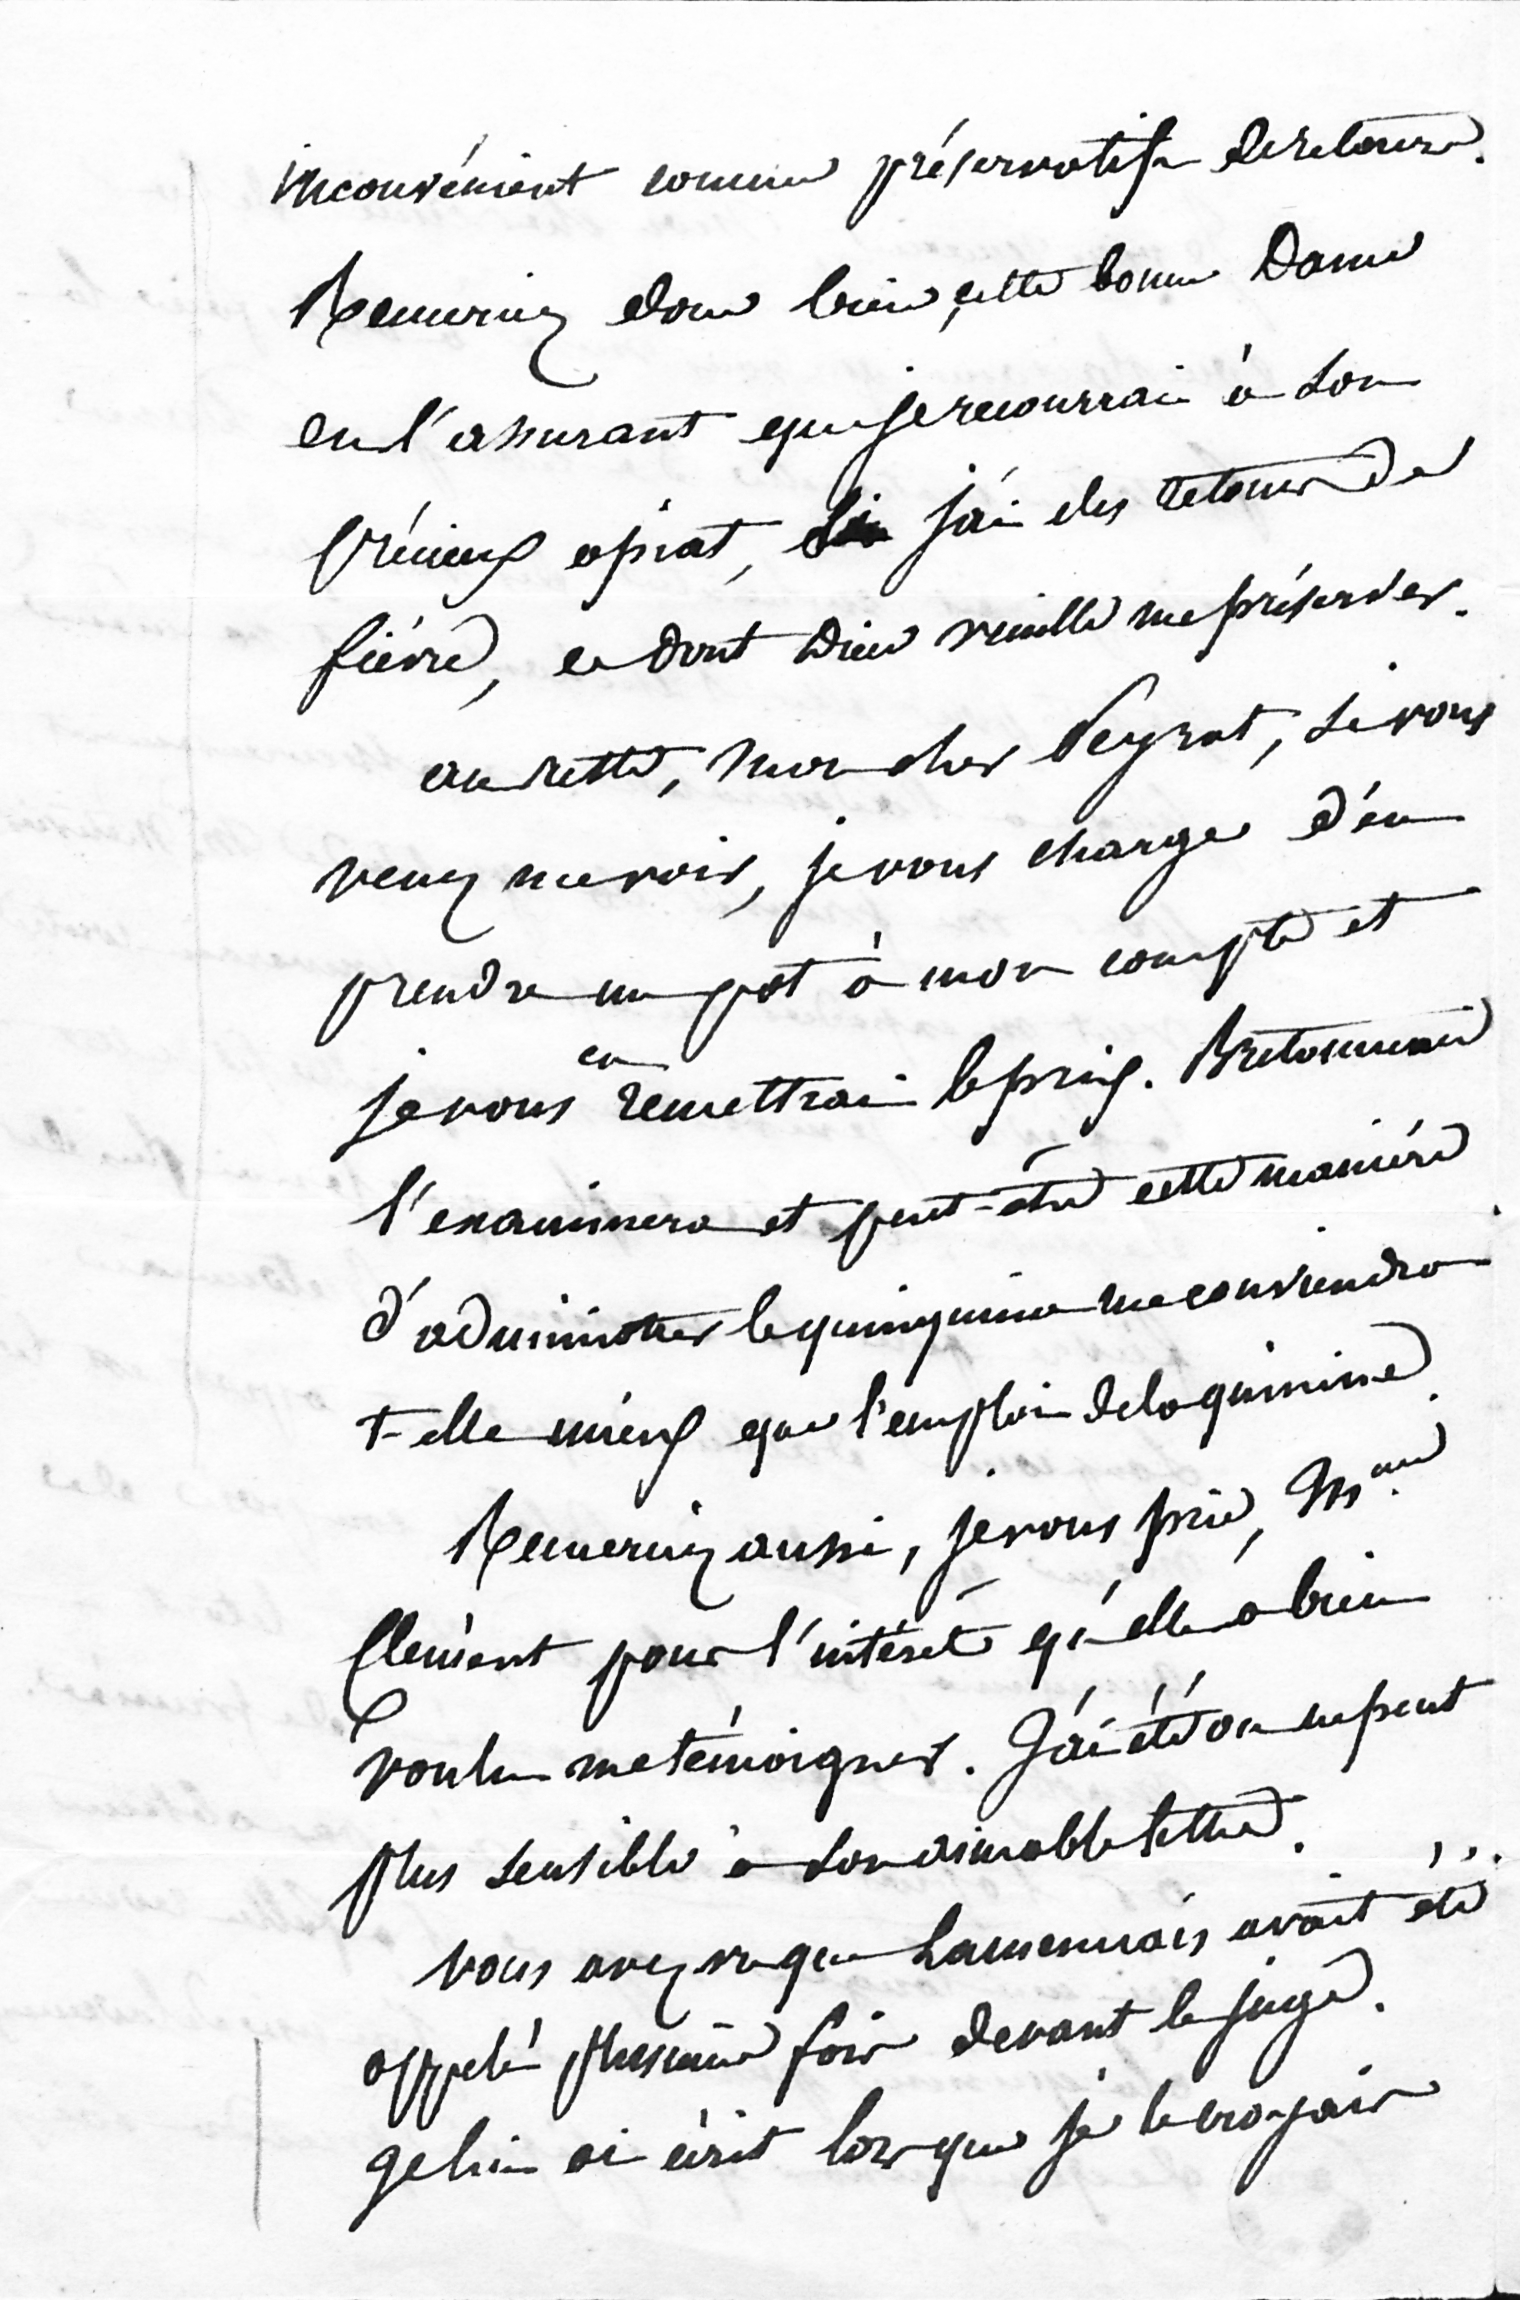 inconvénient comme préservatif de retours.
Remerciez donc bien, cette bonne Dame
en l'assurant que je recourrai à son
précieux opiat, si j'ai des retours de
fièvre, et dont Dieu veuille me préserver.
au reste, mon cher Peyrat, si vous
venez me voir, je vous charge d'en
prendre un pot à mon compte et
je vous en remettrai le prix. Bretonneau
l'examinera et peut-être cette manière
d'administrer le quinquina me conviendra
t-elle mieux que l'emploi de la quinine.
Remerciez aussi, je vous prie, Mme
Clément pour l'intérêt qu'elle a bien
voulu me témoigner. J'ai été on ne peut
plus sensible à son aimable lettre.
vous avez vu que Lamennais avait été
appelé plusieurs fois devant le juge.
je lui ai écrit lorsque je le croyais